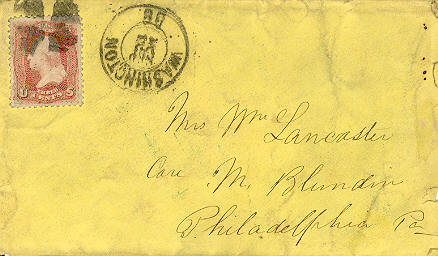 WASHINGTON
DC
U S
CENTS
Mrs Wm Lancaster
Care M. Blundin
Philadelphia Pa